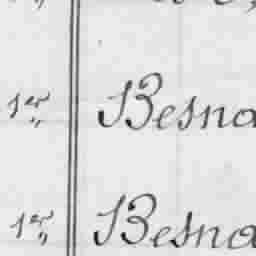 1er Besna
1er Besna